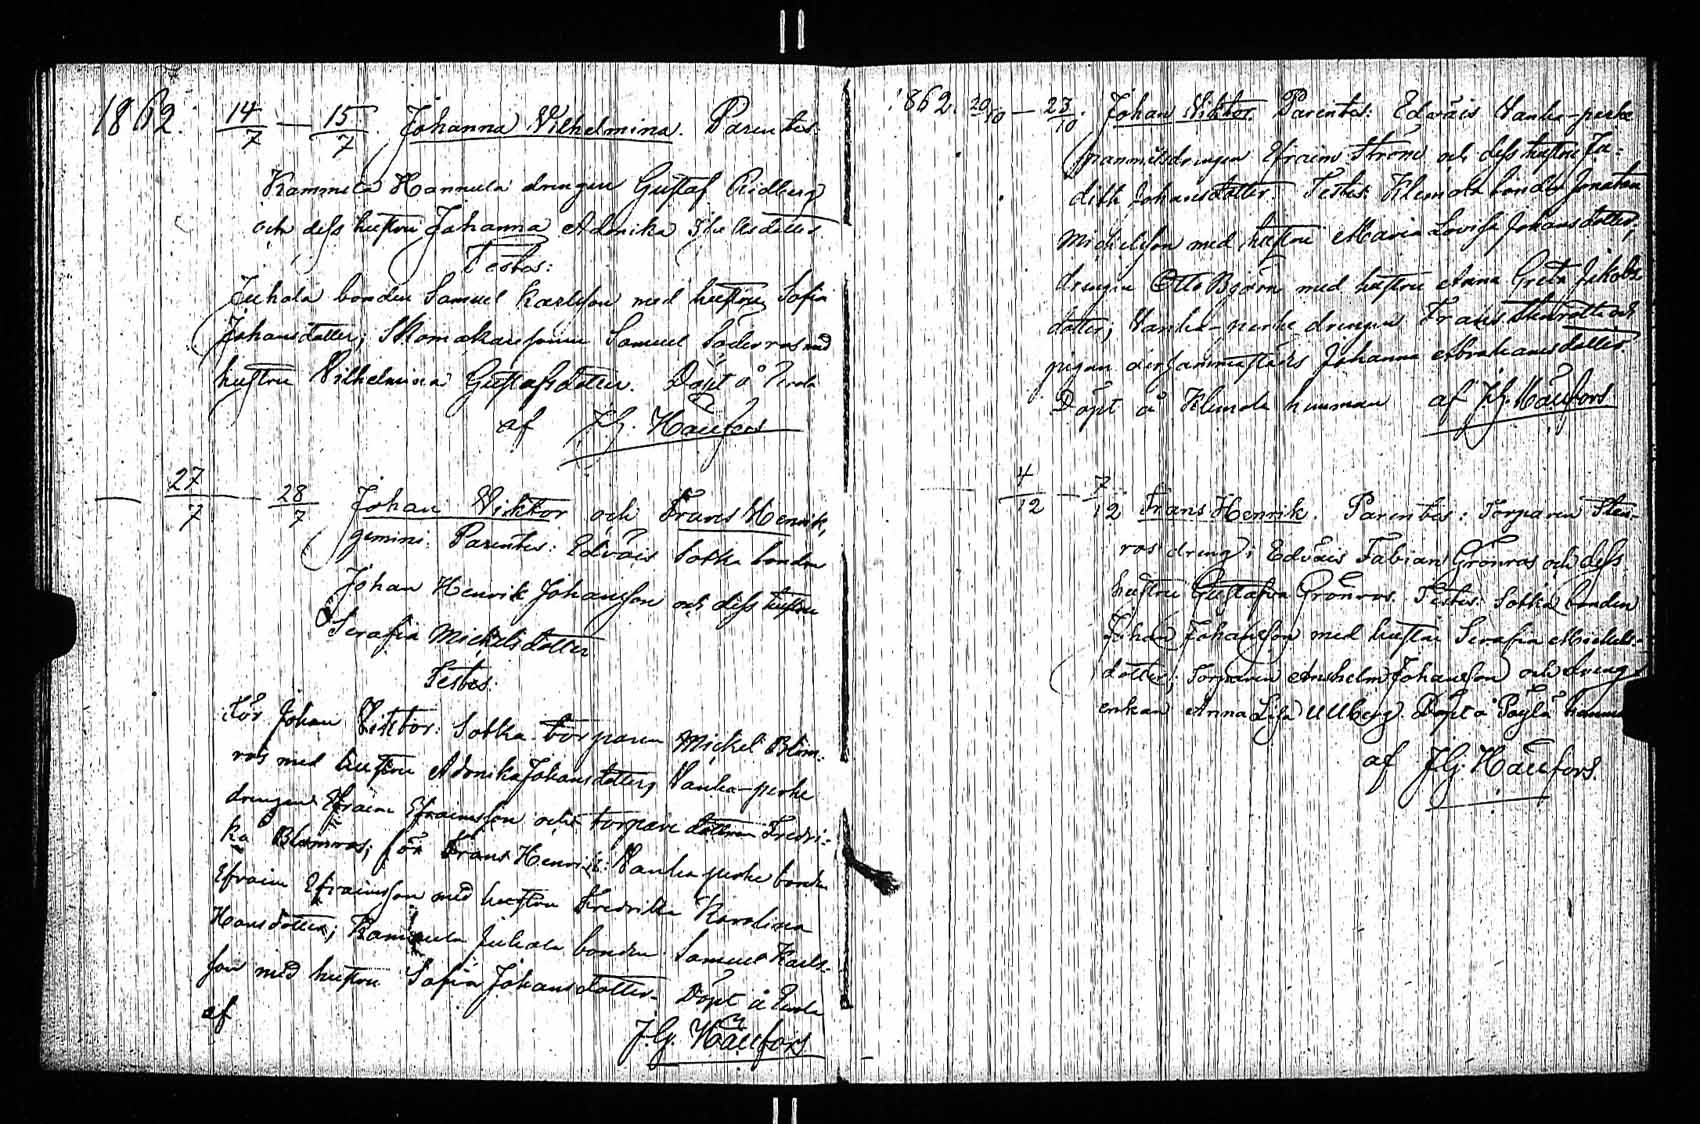 1862. 14/7 — 15/7. Johanna Vilhelmina. Parentes:
Kammela Hannula drengen Gustaf Ridberg
och dess hustru Johanna Adonika
Testes:
Juhola bonden Samuel Karlsson med hustru Sofia
Johansdotter; Skomakaresonen Samuel Söderros med
hustru Vilhelmina Gustafsdotter. Döpt å
af J.G. Haüfors
— 27/7 — 28/7 Johan Viktor och Frans Henrik,
gemini. Parentes: Edväis Sotka bonden
Johan Henrik Johansson och dess hustru
Serafia Mickelsdotter
Testes:
För Johan Viktor: Sotka torparen Mickel Blom-
ros med hustru Adonika Johansdotter, Vanha-perhe
drengen Efraim Efraimsson och torpare dottren Fredri-
ka Blomros; för Frans Henrik: Vanha perhe bonden
Efraim Efraimsson med hustru Fredrika Karolina
Hansdotter; Kammela Juhola bonden Samuel Karls-
son med hustru Sofia Johansdotter. Döpt å
af J.G. Haüfors
1862. 20/10 — 23/10. Johan Viktor. Parentes: Edväis Vanha-perhe
spanmålsdrengen Efraim Ström och dess hustru Ju-
dith Johansdotter. Testes: Klemola bonden Jonatan
Mickelsson med hustru Maria Lovisa Johansdotter;
drengen Otto Björn med hustru Anna Greta Jakobs
dotter; Vanha-perhe drengen Frans Stenroth och
pigan dersammastäds Johanna Abrahamsdotter.
Döpt å Klemola hemman af J.G. Haüfors
— 4/12 — 7/12 Frans Henrik. Parentes: Torparen Sten-
ros dreng i Edväis Fabian Grönros och dess
hustru Gustafva Grönros. Testes: Sotka bonden
Johan Johansson med hustru Serafia Mickels-
dotter; Torparen Anshelm Johansson och drengs
enkan Anna Lisa Ullberg. Döpt å hemman
af J.G. Haüfors.